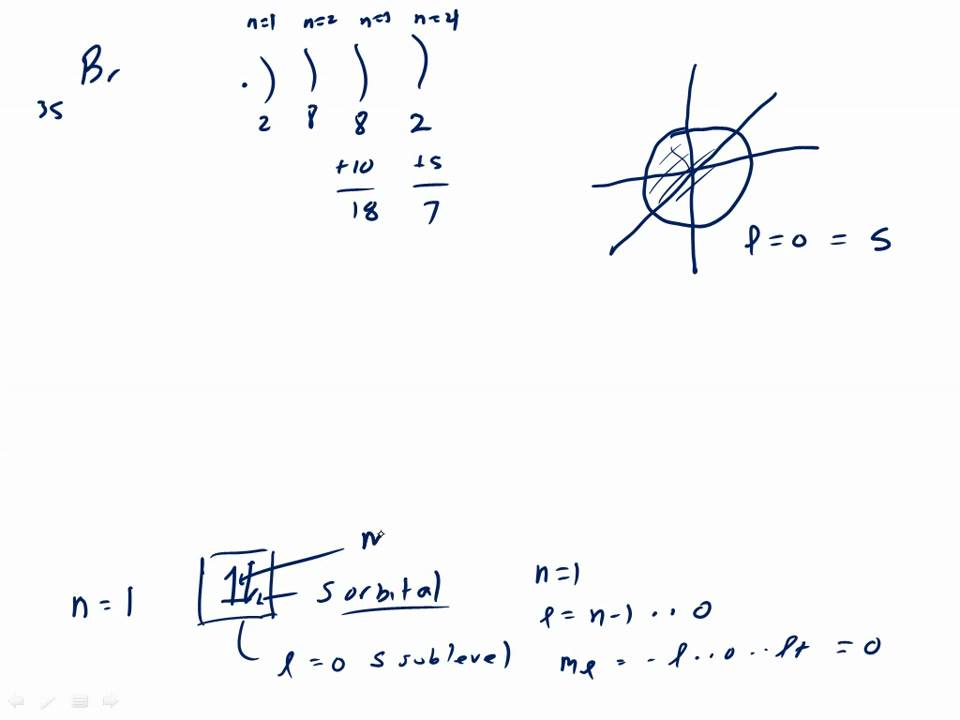 n=1 n=2 n=3 n=4
Br
35
2 8 8 2
+10 +5
18 7
l=0 = s
n
n=1
s orbital
l=0 s sublevel
n=1
l= n-1 .. 0
ml = -l..0..l+ =0